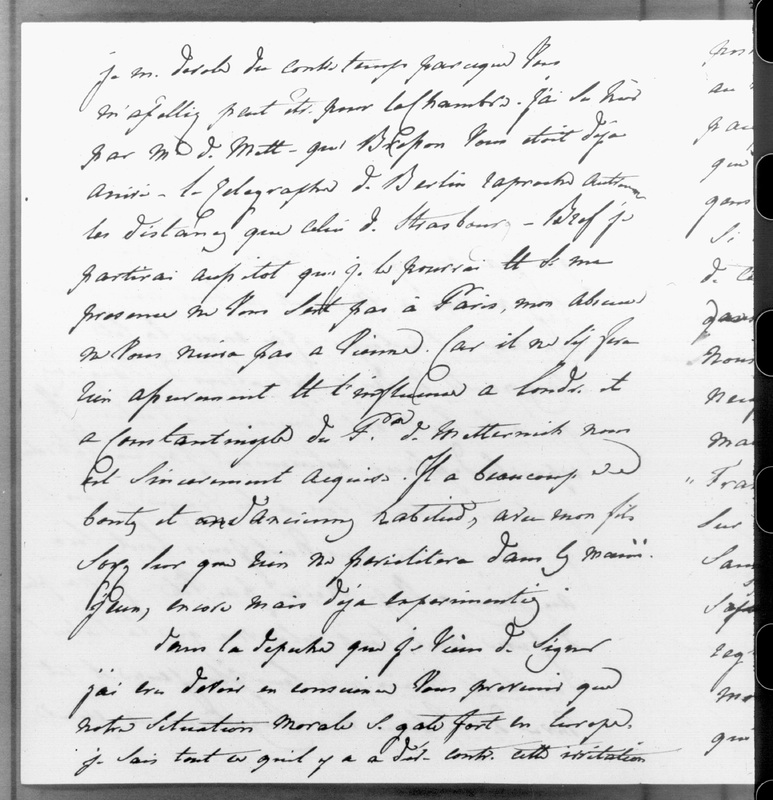 je m. désole du contretemps parceque Vous
m'apelliez peut être pour la Chambre. J'ai su hier
par Md. d. Mett- que Bresson Vous etoit déja
arrivé - le Telegraphe d. Berlin raproche autrement
les distances que celui d. Strasbourg - Bref je
partirai aussitot que je le pourrai et si ma
presence ne Vous sert pas à Paris, mon absence
ne Vous nuira pas a Vienne. Car il ne s'y fera
rien assurement et l'influence a Londres et
a Constantinople du Pce d. Metternich nous
est sincerement acquise. Il a beaucoup de
bontés et d'anciennes habitudes avec mon fils
Soyez sur que rien ne periclitera dans les mains
jeunes encore mais déja experimentées
dans la depeche que je viens de signer
j'ai cru devoir en conscience Vous prevenir que
notre situation morale se gate fort en Europe.
je sais tout ce quil y a a dire contre cette irritation
pos
au
que
Si
nous
mai
"Fra
Sur
qui